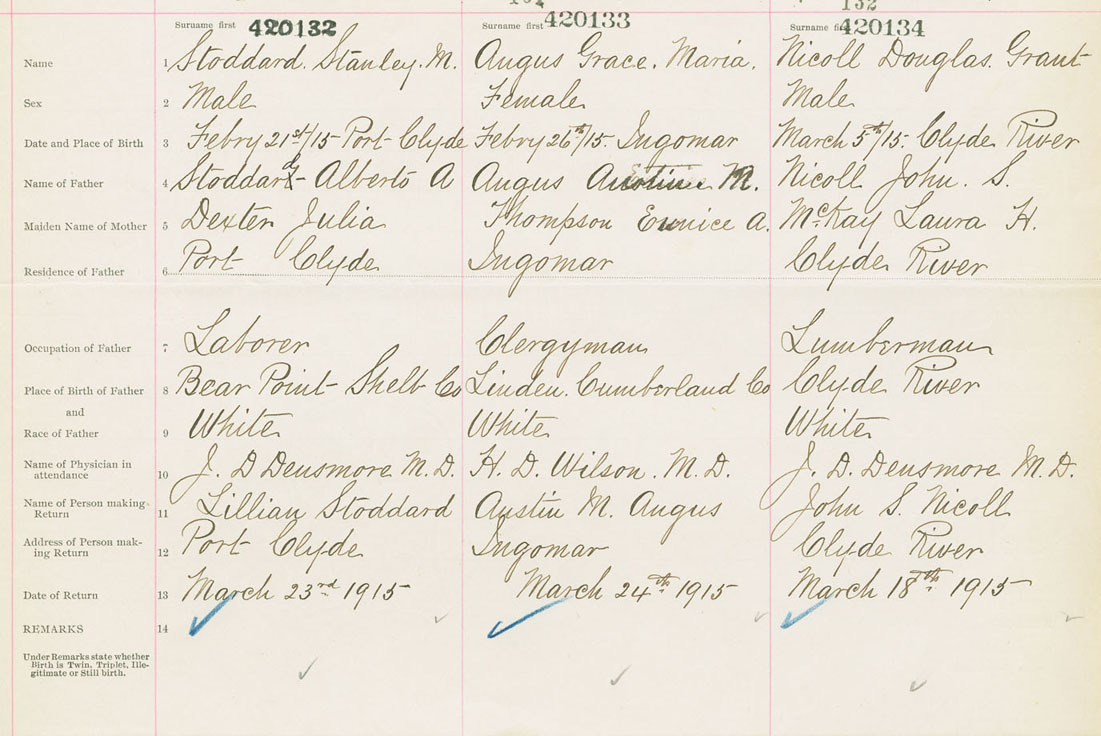 132
Surname first 420132 Surname first 420133 Surname first 420134
Name 1 Stoddard. Stanley. M. Angus Grace. Maria. Nicoll Douglas. Grant
Sex 2 Male Female Male
Date and Place of Birth 3 Febry 21st/15 Port Clyde Febry 26th/15. Ingomar March 5th/15. Clyde River
Name of Father 4 Stoddard Alberto A Angus M. Nicoll John. S.
Maiden Name of Mother 5 Dexter Julia Thompson Eunice A. McKay Laura H.
Residence of Father 6 Port Clyde Ingomar Clyde River
Occupation of Father 7 Laborer Clergyman Lumberman
Place of Birth of Father 8 Bear Point Shelb Co Linden. Cumberland Co Clyde River
and
Race of Father 9 White White White
Name of Physician in
attendance 10 J. D Densmore M.D. H. D. Wilson. M.D. J. D. Densmore M.D.
Name of Person making
Return 11 Lillian Stoddard Austin M. Angus John S. Nicoll
Address of Person mak-
ing Return 12 Port Clyde Ingomar Clyde River
Date of Return 13 March 23rd 1915 March 24th 1915 March 18th 1915
REMARKS 14
Under Remarks state whether
Birth is Twin, Triplet, Ille-
gitimate or Still birth.